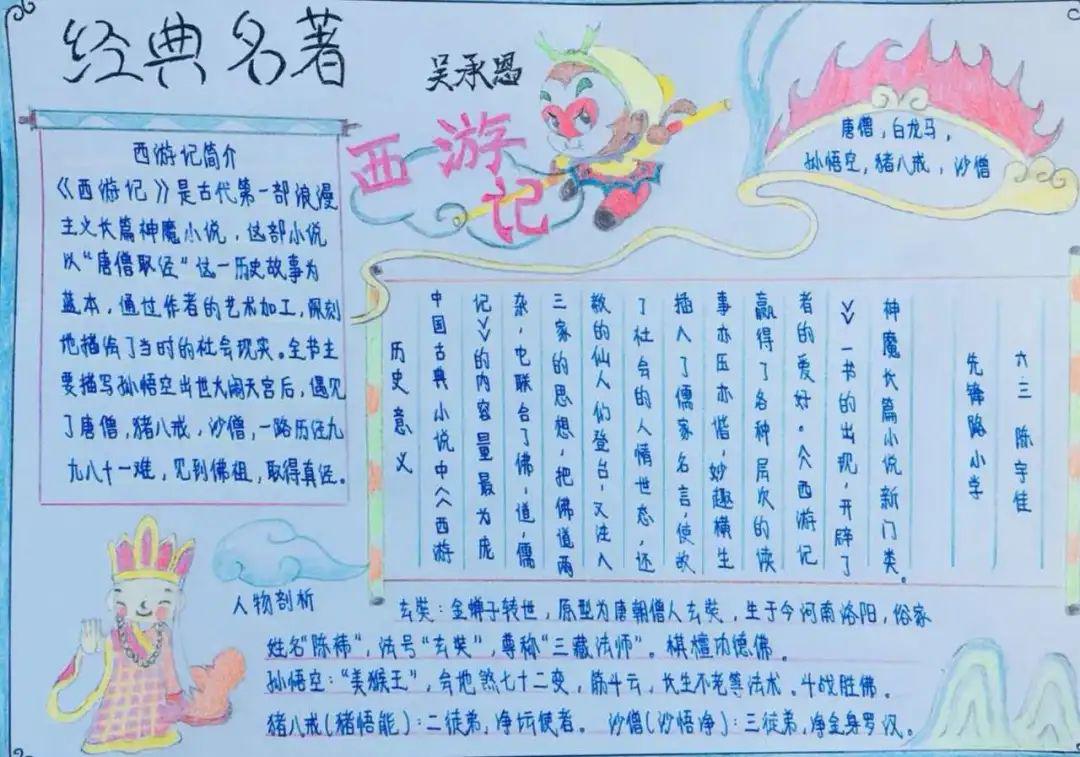 经典名著
吴承恩
西游记
唐僧，白龙马，
孙悟空，猪八戒，沙僧
西游记简介
《西游记》是古代第一部浪漫
主义长篇神魔小说，这部小说
以“唐僧取经”这一历史故事为
蓝本，通过作者的艺术加工，深刻
地描绘了当时的社会现实。全书主
要描写孙悟空出世大闹天宫后，遇见
了唐僧，猪八戒，沙僧，一路历经九
九八十一难，见到佛祖，取得真经。
历史意义
中国古典小说中《西游
记》的内容量最为庞
杂，它联合了佛，道，儒
三家的思想，把佛道两
教的仙人们登台，又注入
了社会的人情世态，还
插入了儒家名言，使故
事亦庄亦谐，妙趣横生
赢得了各种层次的读
者的爱好。《西游记
》一书的出现，开辟了
神魔长篇小说新门类。
先锋路小学
六.三 陈宇佳
人物剖析
玄奘：金蝉子转世，原型为唐朝僧人玄奘，生于今河南洛阳，俗家
姓名“陈祎”，法号“玄奘”，尊称“三藏法师”。棋檀功德佛。
孙悟空：“美猴王”，会地煞七十二变，筋斗云，长生不老等法术。斗战胜佛。
猪八戒（猪悟能）：二徒弟，净坛使者。 沙僧（沙悟净）：三徒弟，净金身罗汉。